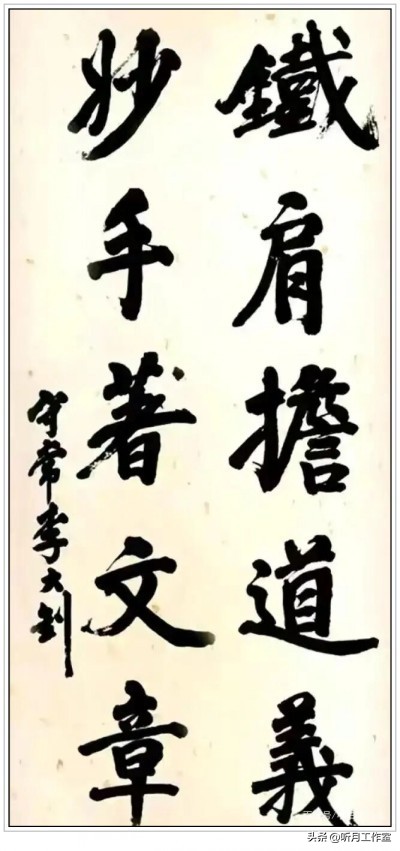 鐵肩擔道義
妙手著文章
守常李大釗
头条@听月工作室